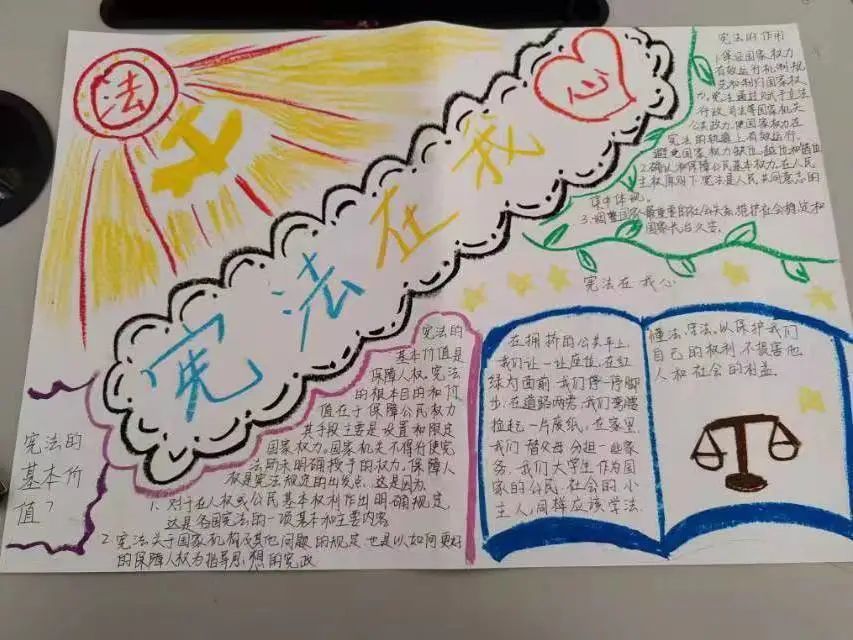 法
宪法在我心
宪法的作用
1.保证国家权力
有效运行机制规
范和制约国家权
力,宪法通过赋予立法
行政司法等国家机关
公法政力,使国家权力在
宪法的轨道上有效运行,
避免国家权力缺位,越位和错位
2.确认和保障公民基本权力,在人民
主权原则下宪法是人民共同意志的
集中体现。
3.调整国家最重要的社会关系,维护社会稳定和
国家长治久安。
宪法的
基本价
值?
宪法的
基本价值是
保障人权,宪法
的根本目的和价
值在于保障公民权力
其手段主要是设置和限定
国家权力,国家机关不得行使宪
法所未明确授予的权力,保障人
权是宪法规定的出发点,这是因为
1、对于在人权或公民基本权利作出明确规定
这是各国宪法的一项基本和主要内容
2.宪法关于国家机构及其他问题的规定也是以如何更好
的保障人权为指导思想的宪政
宪法在我心
在拥挤的公共车上
我们让一让座位,在红
绿灯面前我们停一停脚
步,在道路两旁,我们弯腰
捡起一片废纸,在家里
我们替父母分担一些家
务,我们大学生作为国
家的公民,社会的小
主人,同样应该学法
懂法,守法,以保护我们
自己的权利,不损害他
人和社会的利益.